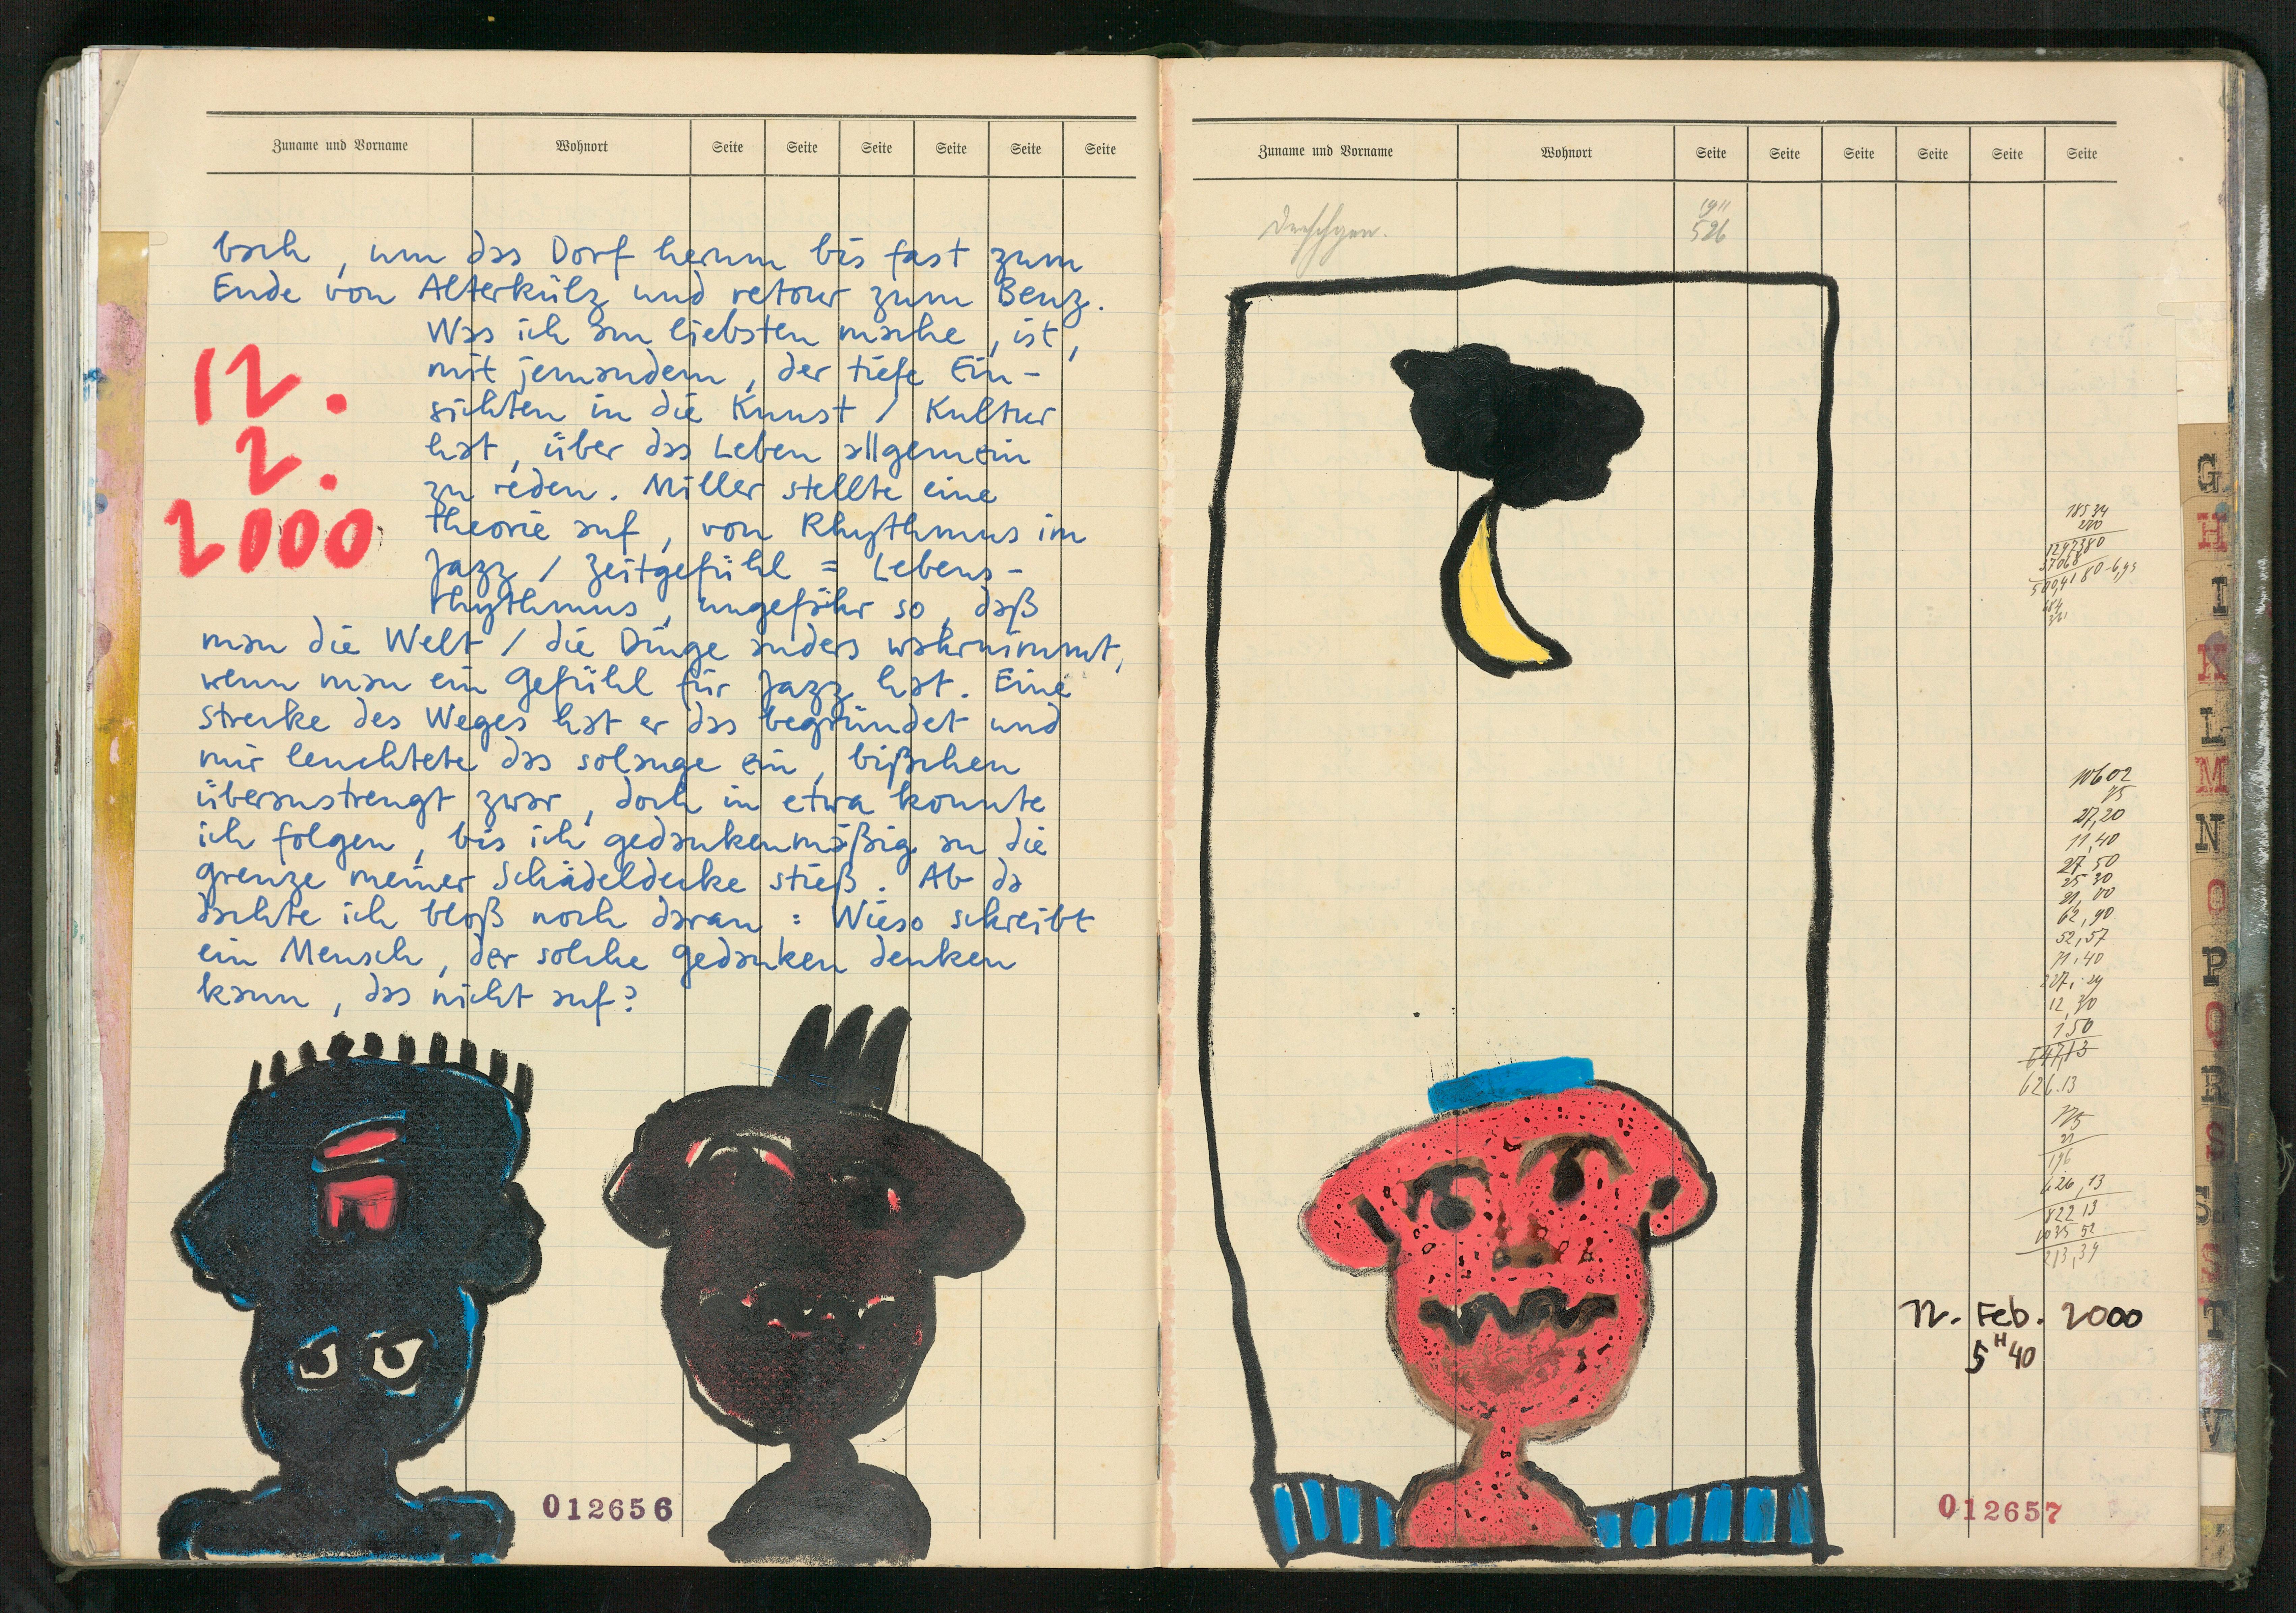 Zuname und Vorname Wohnort Seite Seite Seite Seite Seite Seite
bach, um das Dorf herum bis fast zum
Ende von Alterkülz und retour zum Benz.
Was ich am liebsten mache, ist,
mit jemandem, der tiefe Ein-
sichten in die Kunst / Kultur
hat, über das Leben allgemein
zu reden. Miller stellte eine
Theorie auf, von Rhythmus im
Jazz / Zeitgefühl = Lebens-
rhythmus, ungefähr so, daß
man die Welt / die Dinge anders wahrnimmt,
wenn man ein Gefühl für Jazz hat. Eine
Strecke des Weges hat er das begründet und
mir leuchtete das solange ein, bißchen
überanstrengt zwar, doch in etwa konnte
ich folgen, bis ich gedankenmäßig an die
Grenze meiner Schädeldecke stieß. Ab da
dachte ich bloß noch daran: Wieso schreibt
ein Mensch, der solche Gedanken denken
kann, das nicht auf?
12.
2.
2000
012656
Zuname und Vorname Wohnort Seite Seite Seite Seite Seite Seite
1911
526
18534
220
10602
75
27,20
11,40
27.50
25 30
21,00
62,90
52,57
71,40
12,30
1,50
647,13
626.13
175
21
196
626,13
822 13
1035 52
213,39
12. Feb. 2000
5 H 40
012657
G
H
I
K
L
M
N
O
P
Q
R
S
Sch
S
T
V